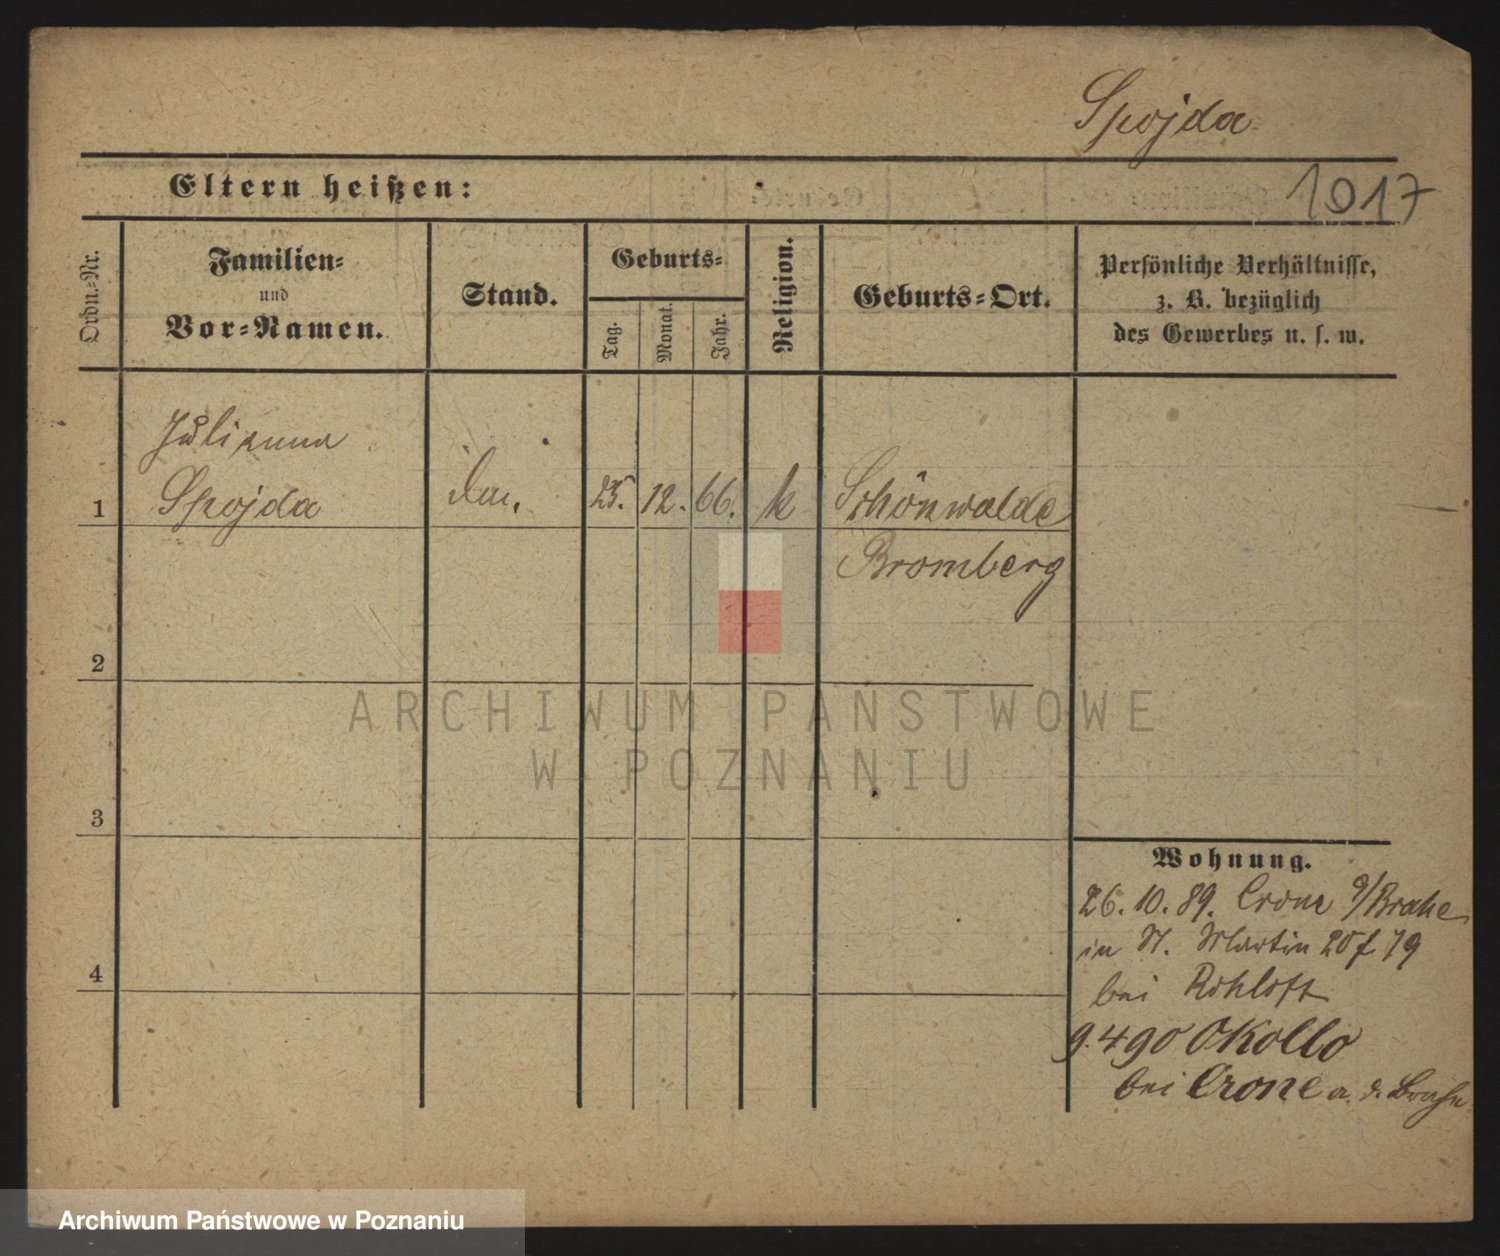 Spojda
Eltern heißen:
1017
Ordn.-Nr.
Familien-
und
Vor-Namen.
Stand.
Geburts-
Tag.
Monat.
Jahr.
Religion.
Geburts-Ort.
Persönliche Verhältnisse,
z. B. bezüglich
des Gewerbes u. s. w.
Julianna
1 Spojda 25. 12. 66. k Schönwalde
Bromberg
2
3
4
Wohnung.
26. 10. 89. Crone a/Brahe
in St. Martin 20 f 79
bei Rohloff
9. 4 90 Okollo
bei Crone a. d. Brahe
ARCHIWUM PAŃSTWOWE
W POZNANIU
Archiwum Państwowe w Poznaniu